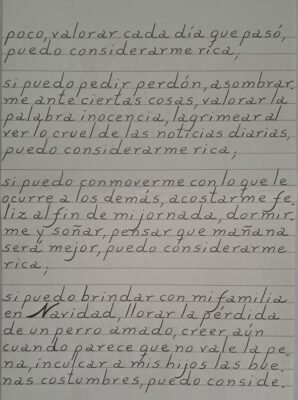 poco, valorar cada día que pasó,
puedo considerarme rica;
si puedo pedir perdón, asombrar-
me ante ciertas cosas, valorar la
palabra inocencia, lagrimear al
ver lo cruel de las noticias diarias,
puedo considerarme rica;
si puedo conmoverme con lo que le
ocurre a los demás, acostarme fe-
liz al fin de mi jornada, dormir-
me y soñar, pensar que mañana
será mejor, puedo considerarme
rica;
si puedo brindar con mi familia
en Navidad, llorar la pérdida
de un perro amado, creer, aún
cuando parece que no vale la pe-
na, inculcar a mis hijos las bue-
nas costumbres, puedo conside-